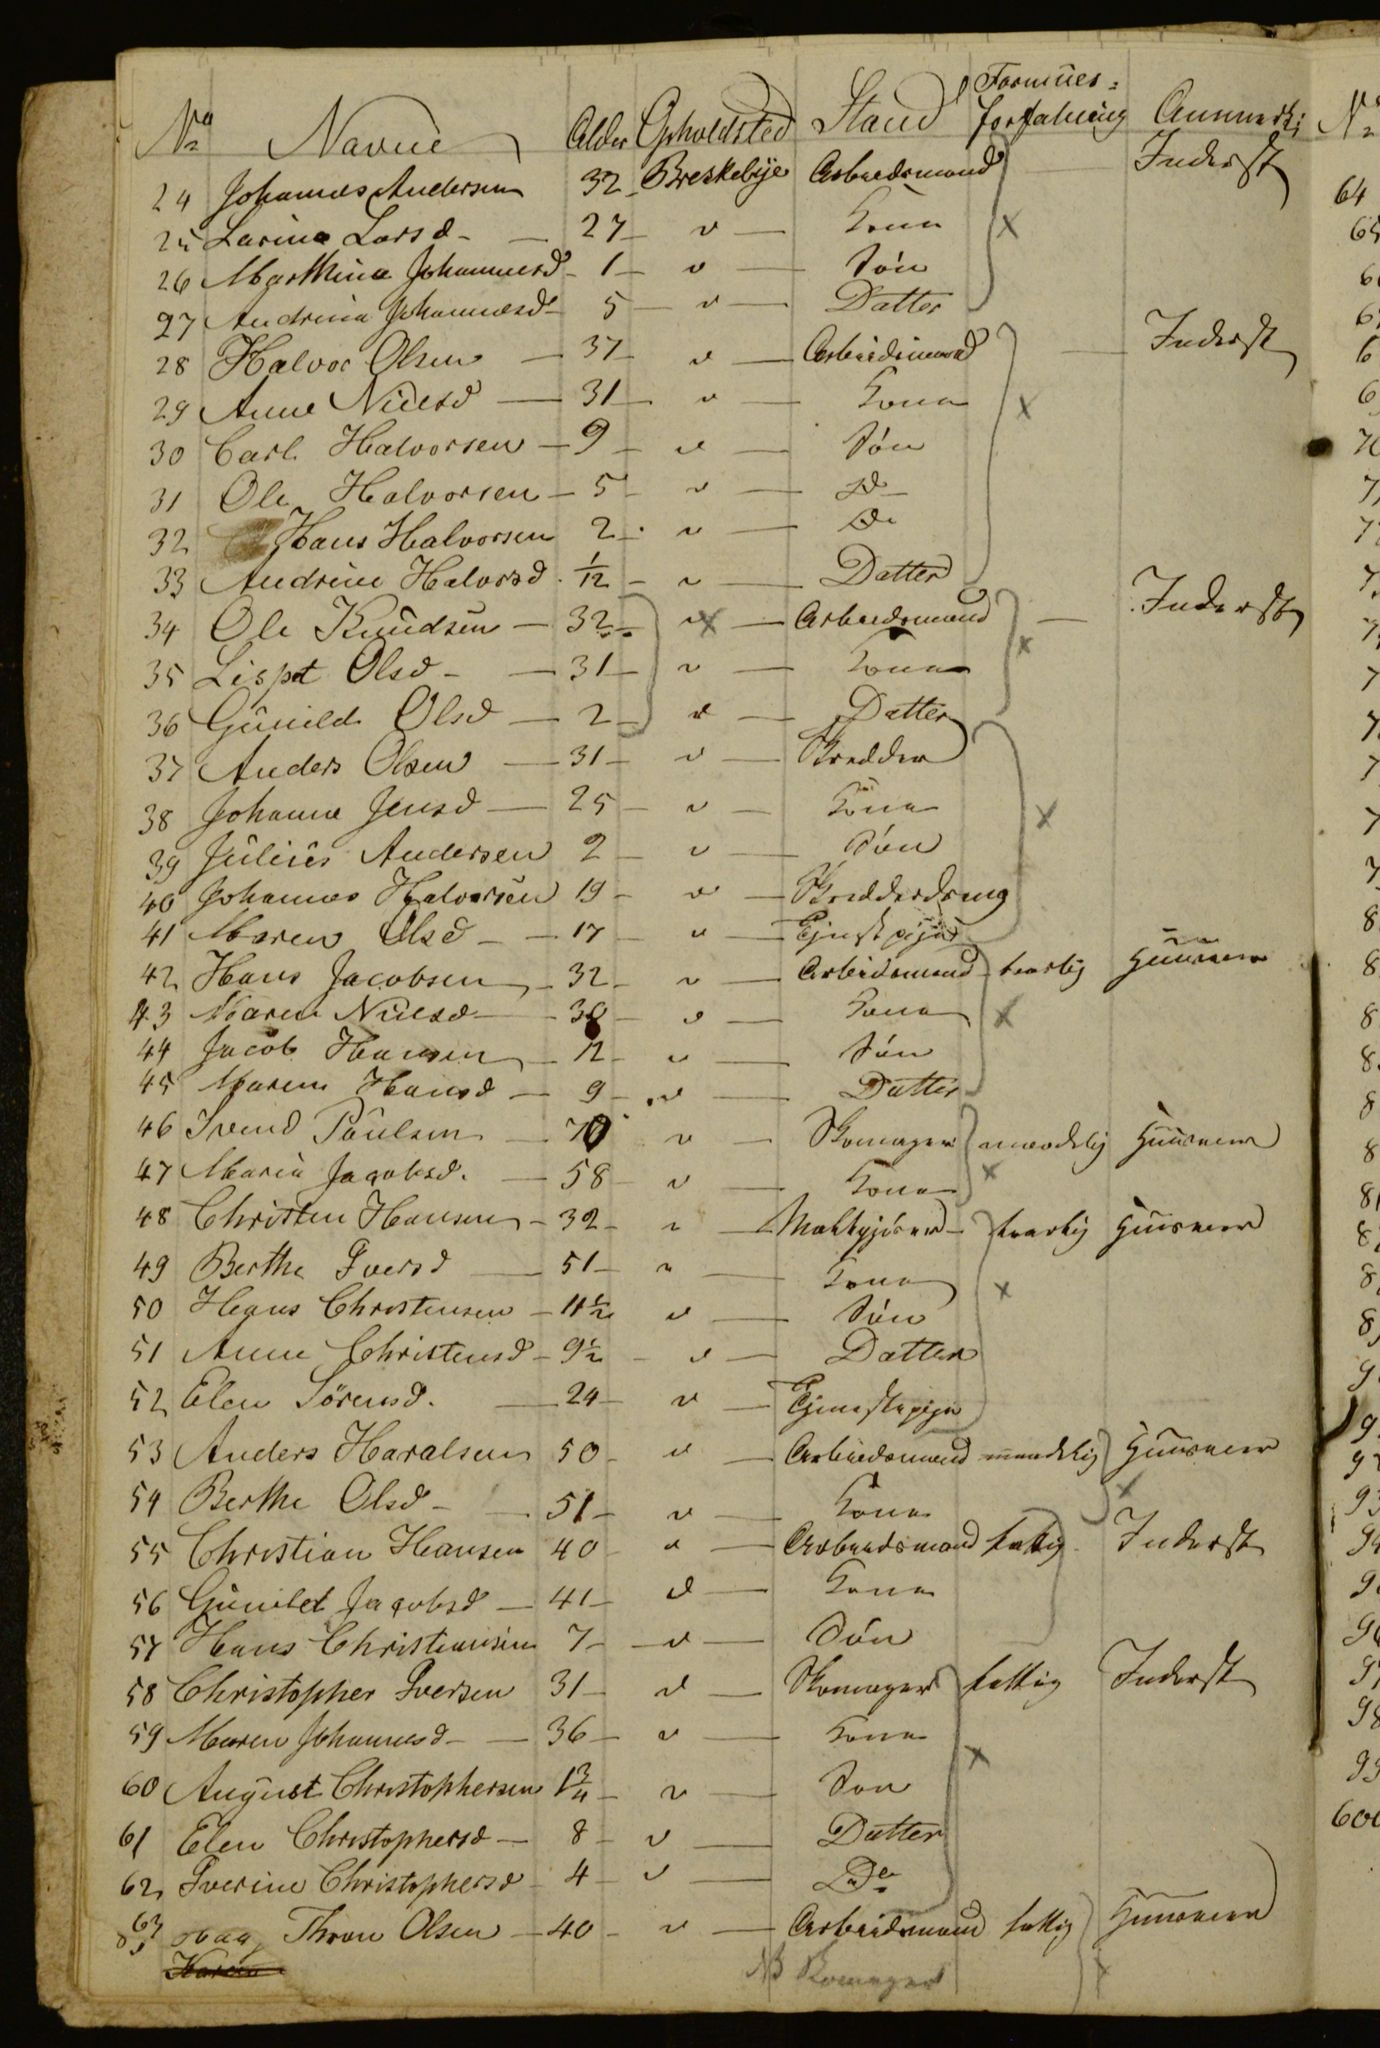 No Navne Alder Opholdsted Stand Formues= forfatning Anmærk:
24 Johannes Andersen 32 Breskebye Arbeidsmand Inderst
25 Larine Larsd - 27 " Kone
26 Marthine Johannesd 1 " Søn
27 Andrine Johannesd 5 " Datter
28 Halvor Olsen 37 " Arbeidsmand Inderst
29 Anne Nielsd 31 " Kone
30 Carl Halvorsen 9 " Søn
31 Ole Halvorsen 5 " do
32 Hans Halvorsen 2 " do
33 Andrine Halvorsd. 1/12 " Datter
34 Ole Knudsen 32 " Arbeidsmand Inderst
35 Lispet Olsd - 31 " Kone
36 Gunild Olsd 2 " Datter
37 Anders Olsen 31 " Skredder
38 Johanne Jensd 25 " Kone
39 Julius Andersen 2 " Søn
40 Johannes Halvorsen 19 " Skredderdreng
41 Maren Olsd 17 " Tjenstpige
42 Hans Jacobsen 32 " Arbeidsmand Huusmer
43 Maren Nielsd 38 " Kone
44 Jacob Hansen 12 " Søn
45 Maren Hansd 9 " Datter
46 Svend Paulsen 70 " Skomager maadelig Huusmer
47 Maria Jacobsd. 58 " Kone
48 Christen Hansen 32 " Huusmer
49 Berthe Iversd 51 " Kone
50 Hans Christensen 11 1/2 " Søn
51 Anne Christensd 9 1/2 " Datter
52 Elen Sørensd. 24 " Tjenestepige
53 Anders Haralsen 50 " Arbeidsmand maadelig Huusmer
54 Berthe Olsd - 51 " Kone
55 Christian Hansen 40 " Arbeidsmand fattig Inderst
56 Gunild Jacobsd 41 " Kone
57 Hans Christiansen 7 " Søn
58 Christopher Iversen 31 " Skomager fattig Inderst
59 Maren Johannesd 36 " Kone
60 August Christophersen 1 3/4 " Søn
61 Elen Christophersd 8 " Datter
62 Iverine Christophersd 4 " Do
63 Thron Olsen 40 " Arbeidsmand fattig Huusmer
NB Skomager
No
64
65
600